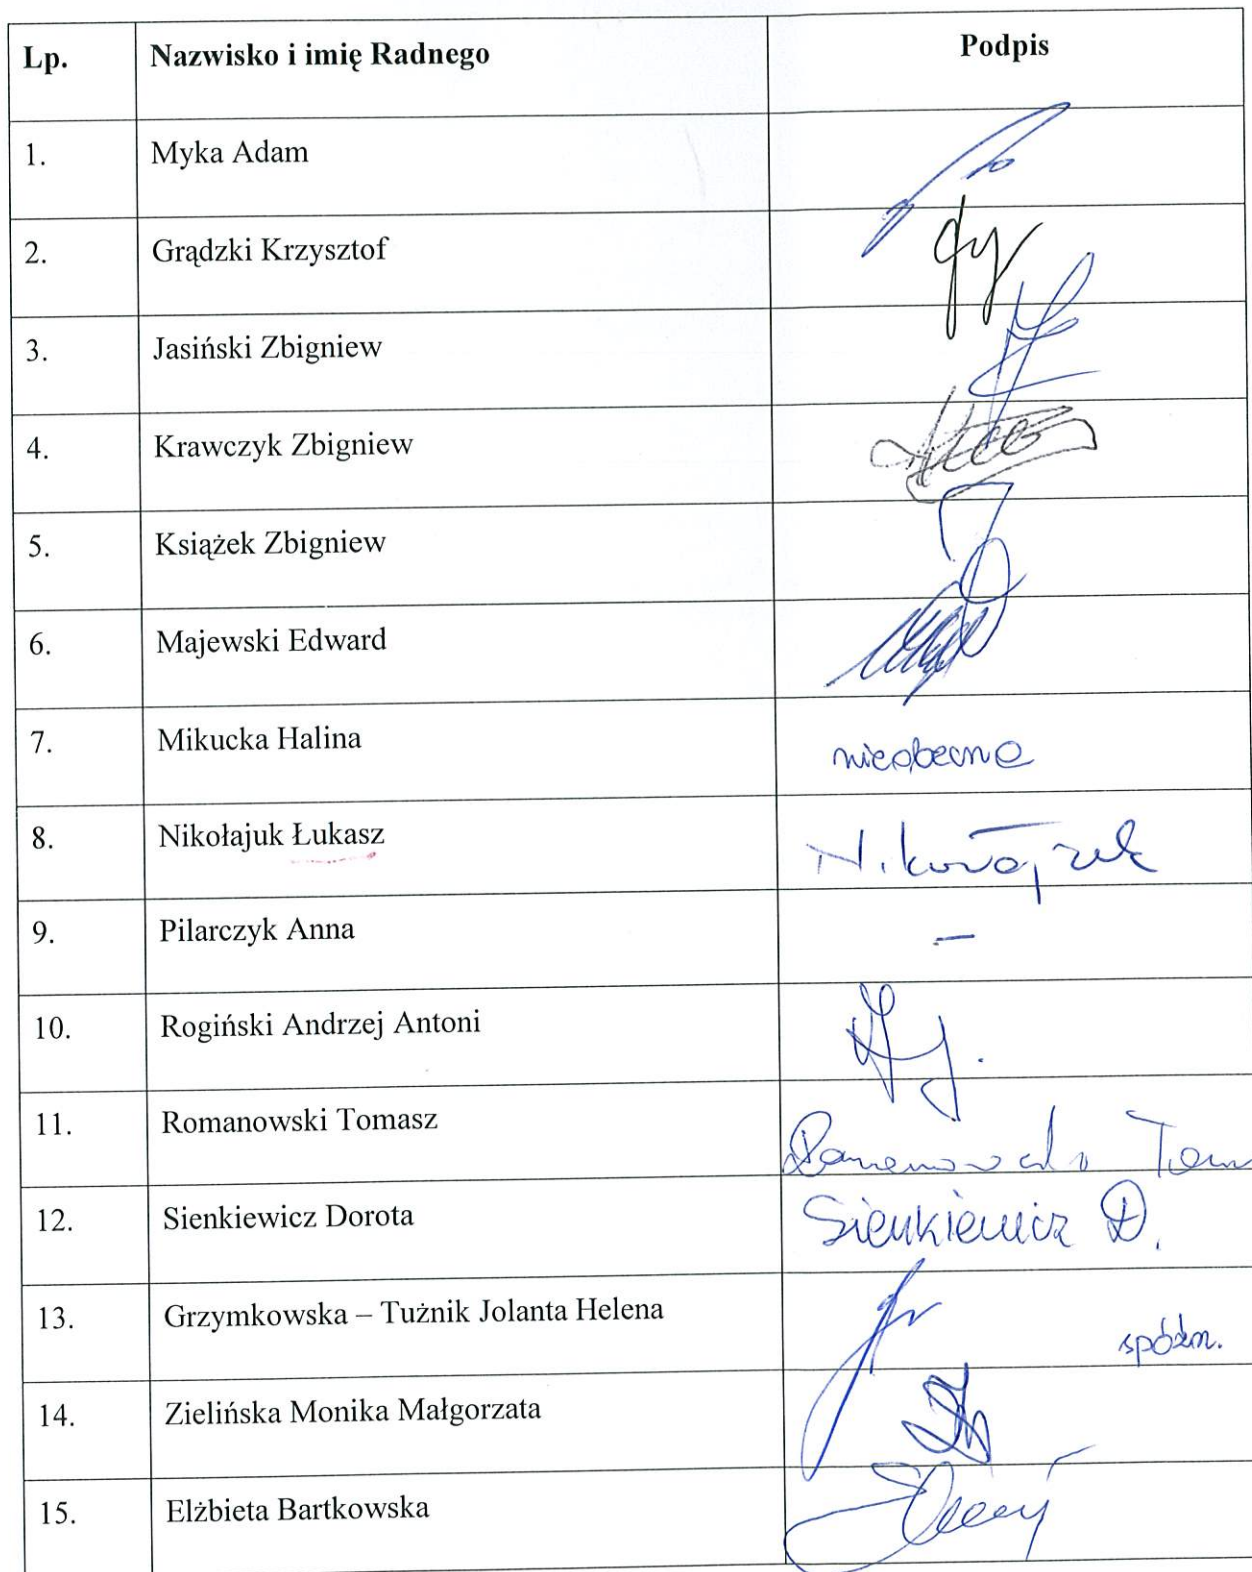 Lp. Nazwisko i imię Radnego Podpis
1. Myka Adam
2. Grądzki Krzysztof
3. Jasiński Zbigniew
4. Krawczyk Zbigniew
5. Książek Zbigniew
6. Majewski Edward
7. Mikucka Halina nieobecna
8. Nikołajuk Łukasz N.kołajuk
9. Pilarczyk Anna –
10. Rogiński Andrzej Antoni
11. Romanowski Tomasz Romanowski Tom
12. Sienkiewicz Dorota Sienkiewicz D.
13. Grzymkowska – Tużnik Jolanta Helena spóźn.
14. Zielińska Monika Małgorzata
15. Elżbieta Bartkowska